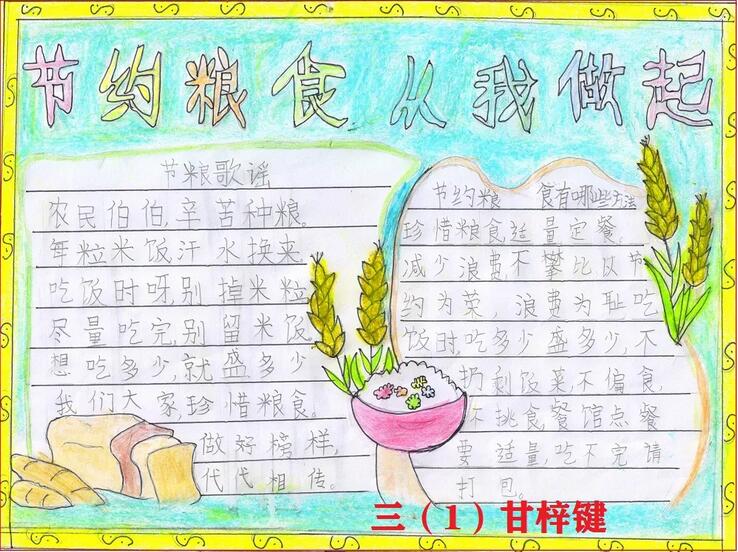 节约粮食 从我做起
节粮歌谣
农民伯伯,辛苦种粮。
每粒米饭,汗水换来。
吃饭时呀,别掉米粒
尽量吃完,别留米饭。
想吃多少,就盛多少
我们大家珍惜粮食。
做好榜样,
代代相传。
节约粮 食有哪些方法
珍惜粮食适量定餐。
减少浪费,不攀比以节
约为菜，浪费为耻吃
饭时,吃多少盛多少,不
扔剩饭菜,不偏食,
不挑食,餐馆点餐
要适量,吃不完请
打包。
三（1）甘梓键